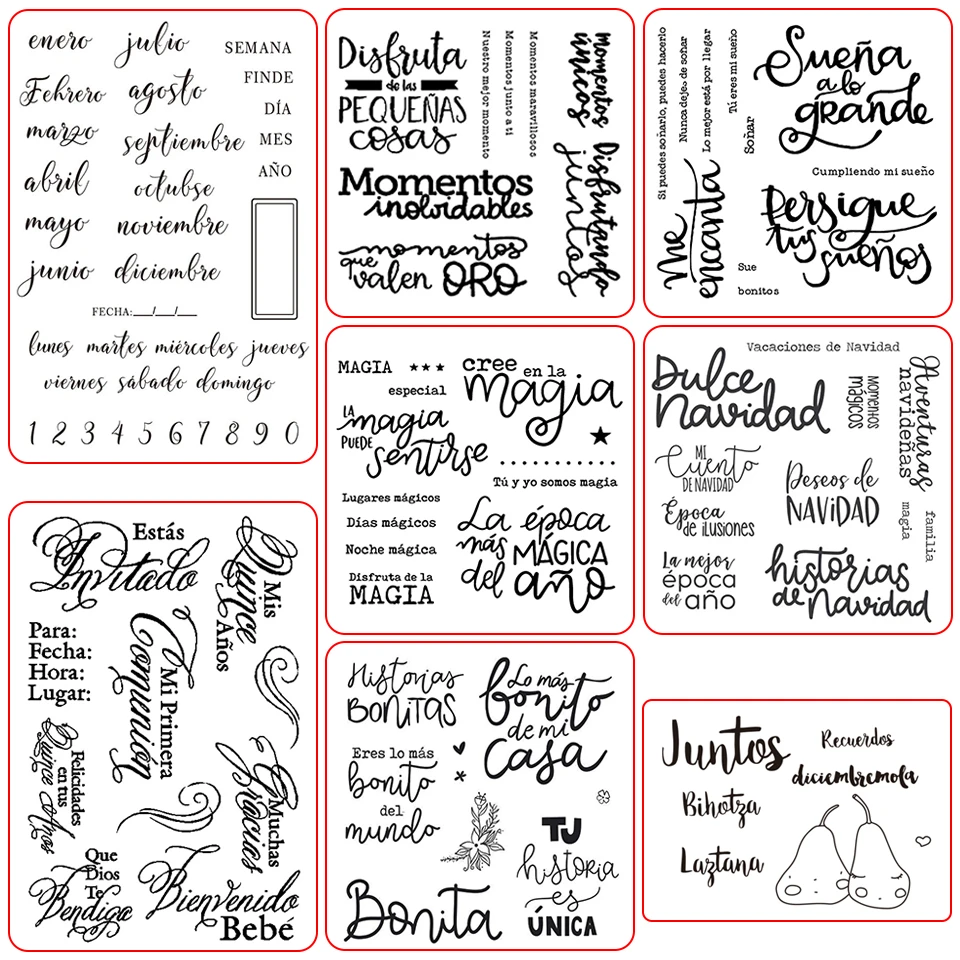 enero
Febrero
marzo
abril
mayo
junio
julio
agosto
septiembre
octubse
noviembre
diciembre
SEMANA
FINDE
DÍA
MES
AÑO
FECHA:__/__/__
lunes martes miércoles jueves
viernes sábado domingo
1 2 3 4 5 6 7 8 9 0
Disfruta
de las
PEQUEÑAS
cosas
Nuestro mejor momento
Momentos junto a ti
Momentos maravillosos
momentos
únicos
Momentos
inolvidables
Disfrutando
juntos
momentos
que
valen ORO
Si puedes soñarlo, puedes hacerlo
Nunca dejes de soñar
Lo mejor está por llegar
Tú eres mi sueño
Soñar
Sueña
a lo
grande
Cumpliendo mi sueño
Me
encanta
Persigue
tus
sueños
Sue
bonitos
MAGIA
especial
cree en la
magia
LA
magia
PUEDE
sentirse
Tú y yo somos magia
Lugares mágicos
Días mágicos
Noche mágica
Disfruta de la
MAGIA
La época
más MÁGICA
del año
Vacaciones de Navidad
Dulce
Navidad
MOMENTOS
mágicos
Aventuras
navideñas
MI
Cuento
DE NAVIDAD
Deseos de
NAVIDAD
Época
de ilusiones
magia
familia
La mejor
época
del año
historias
de Navidad
Estás
Invitado
Mis
Quince
Años
Para:
Fecha:
Hora:
Lugar:
Mi Primera
Comunión
Felicidades
en tus
Quince Años
Muchas
Gracias
Que
Dios
Te
Bendiga
Bienvenido
Bebé
Historias
BONITAS
Lo más
bonito
de mi
Casa
Eres lo más
bonito
del
mundo
TU
historia
es
ÚNICA
Bonita
Juntos
Recuerdos
diciembremola
Bihotza
Laztana